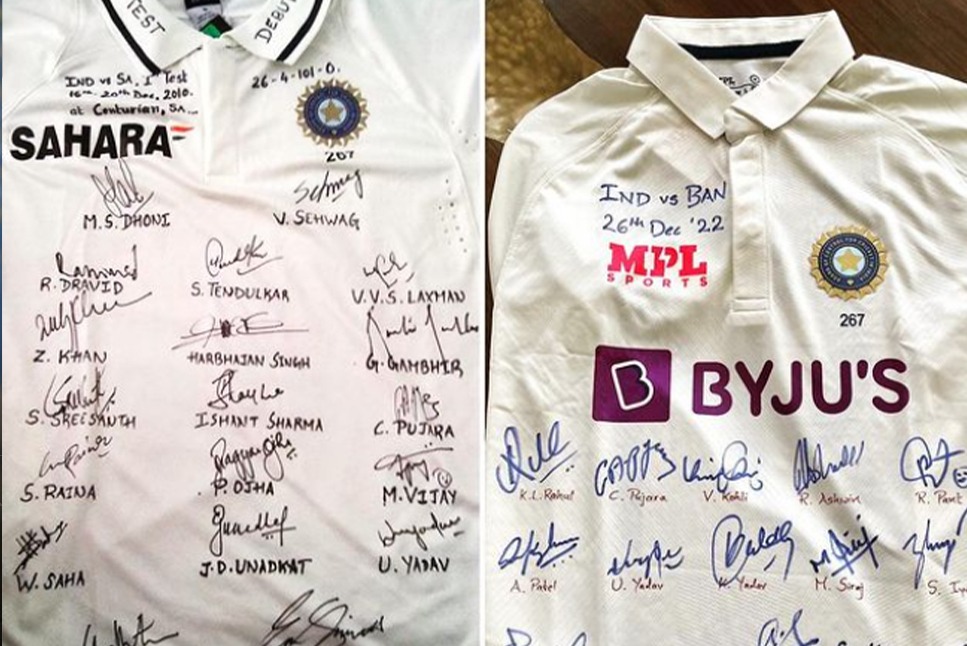 TEST
DEBUT
IND vs SA, 1st Test
16th - 20th Dec, 2010.
at Centurian, SA...
26-4-101-0.
SAHARA
267
M.S. DHONI
V. SEHWAG
R. DRAVID
S. TENDULKAR
V.V.S. LAXMAN
Z. KHAN
HARBHAJAN SINGH
G. GAMBHIR
S. SREESANTH
ISHANT SHARMA
C. PUJARA
S. RAINA
P. OJHA
M. VIJAY
W. SAHA
J.D. UNADKAT
U. YADAV
MPL
IND vs BAN
26th Dec '22
MPL
SPORTS
267
BYJU'S
K.L. Rahul
C. Pujara
V. Kohli
R. Ashwin
R. Pant
A. Patel
U. Yadav
K. Yadav
M. Siraj
S. Iye